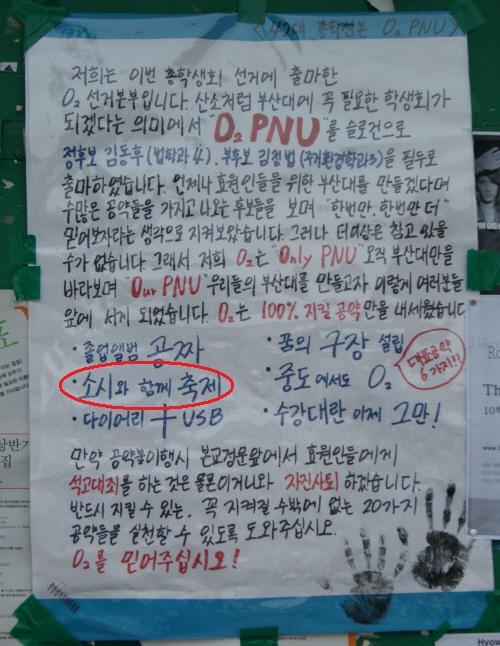 <42대 총학선본 O₂ PNU>
저희는 이번 총학생회 선거에 출마한
O₂ 선거본부입니다. 산소처럼 부산대에 꼭 필요한 학생회가
되겠다는 의미에서 "O₂ PNU"를 슬로건으로
정후보 김동후(법학과4). 부후보 김정법(주거환경학과3)을 필두로
출마하였습니다. 언제나 효원인들을 위한 부산대를 만들겠다며
수많은 공약들을 가지고 나오는 후보들을 보며 "한번만, 한번만 더"
믿어보자라는 생각으로 지켜보았습니다. 그러나 더이상은 참고 있을
수가 없습니다. 그래서 저희 O₂는 "Only PNU" 오직 부산대만을
바라보며 "Our PNU" 우리들의 부산대를 만들고자 이렇게 여러분들
앞에 서게 되었습니다. O₂는 100% 지킬 공약만을 내세웠습니다
·졸업앨범 공짜
·꿈의 구장 설립
·소시와 함께 축제
·중도에서도 O₂
·다이어리 + USB
·수강대란 이제 그만!
대표공약
6가지!!
만약 공약불이행시 본교정문앞에서 효원인들에게
석고대죄를 하는 것은 물론이거니와 자진사퇴 하겠습니다.
반드시 지킬 수 있는, 꼭 지켜질 수밖에 없는 20가지
공약들을 실천할 수 있도록 도와주십시오.
O₂를 믿어주십시오!